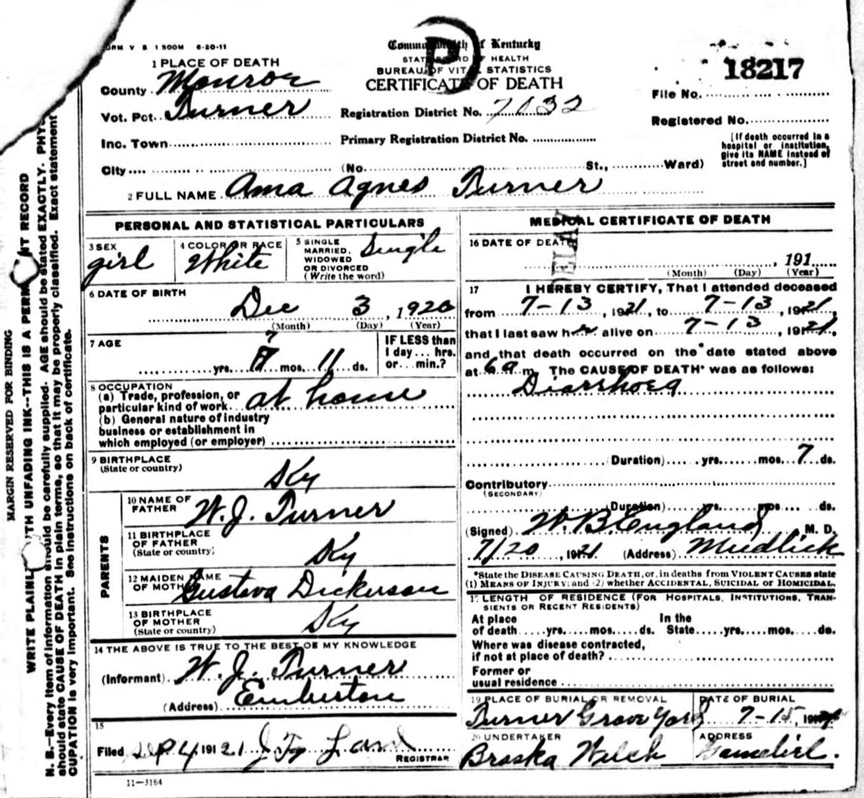 FORM V S 1 500M 6-20-11
Commonwealth of Kentucky
STATE BOARD OF HEALTH
BUREAU OF VITAL STATISTICS
CERTIFICATE OF DEATH
D
18217
File No.
Registered No.
[If death occurred in a hospital or institution, give its NAME instead of street and number.]
1 PLACE OF DEATH
County Monroe
Vot. Pct. Turner Registration District No. 7032
Inc. Town Primary Registration District No.
City (No. St., Ward)
2 FULL NAME Ama Agnes Turner
PERSONAL AND STATISTICAL PARTICULARS
3 SEX girl
4 COLOR OR RACE White
5 SINGLE MARRIED, WIDOWED OR DIVORCED (Write the word) Single
6 DATE OF BIRTH
Dec 3, 1920
(Month) (Day) (Year)
7 AGE
yrs. 7 mos. 11 ds.
IF LESS than 1 day... hrs. or... min.?
8 OCCUPATION
(a) Trade, profession, or particular kind of work at home
(b) General nature of industry business or establishment in which employed (or employer)
9 BIRTHPLACE
(State or country)
Ky
PARENTS
10 NAME OF FATHER W. J. Turner
11 BIRTHPLACE OF FATHER (State or country) Ky
12 MAIDEN NAME OF MOTHER Gustava Dickerson
13 BIRTHPLACE OF MOTHER (State or country) Ky
14 THE ABOVE IS TRUE TO THE BEST OF MY KNOWLEDGE
(Informant) W. J. Turner
(Address) Emberton
15
Filed Sep 4, 1921
REGISTRAR
11-3184
MEDICAL CERTIFICATE OF DEATH
16 DATE OF DEATH
, 191
(Month) (Day) (Year)
17 I HEREBY CERTIFY, That I attended deceased
from 7-13, 1921, to 7-13, 1921,
that I last saw her alive on 7-13, 1921,
and that death occurred on the date stated above
at 6 a m. The CAUSE OF DEATH* was as follows:
Diarrhoea
(Duration) yrs. mos. 7 ds.
Contributory
(SECONDARY)
(Duration) yrs. mos. ds.
(Signed) W. B. England M. D.
7/20, 1921 (Address) Mudlick
*State the DISEASE CAUSING DEATH, or, in deaths from VIOLENT CAUSES state
(1) MEANS OF INJURY; and (2) whether ACCIDENTAL, SUICIDAL or HOMICIDAL.
LENGTH OF RESIDENCE (FOR HOSPITALS, INSTITUTIONS, TRANSIENTS OR RECENT RESIDENTS)
At place of death yrs. mos. ds. In the State yrs. mos. ds.
Where was disease contracted, if not at place of death?
Former or usual residence
19 PLACE OF BURIAL OR REMOVAL
Turner Grave Yard
DATE OF BURIAL
7-15, 1921
20 UNDERTAKER
Braska Welch
ADDRESS
Gamaliel.
MARGIN RESERVED FOR BINDING
WRITE PLAINLY WITH UNFADING INK--THIS IS A PERMANENT RECORD
N. B.--Every item of information should be carefully supplied. AGE should be stated EXACTLY. PHY
should state CAUSE OF DEATH in plain terms, so that it may be properly classified. Exact statement
CUPATION is very important. See instructions on back of certificate.